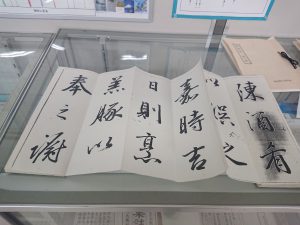 陳酒肴
以娯之
嘉時吉
日則烹
羔豚以
奉之躕